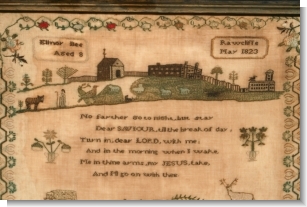 Elinor Bee
Aged 8
Rawcliffe
Mar 1823
No farther go to nite, but stay
Dear SAVIOUR, till the break of day,
Turn in, dear LORD, with me;
And in the morning when I wake
Me in thine arms, my JESUS, take
And I'll go on with thee